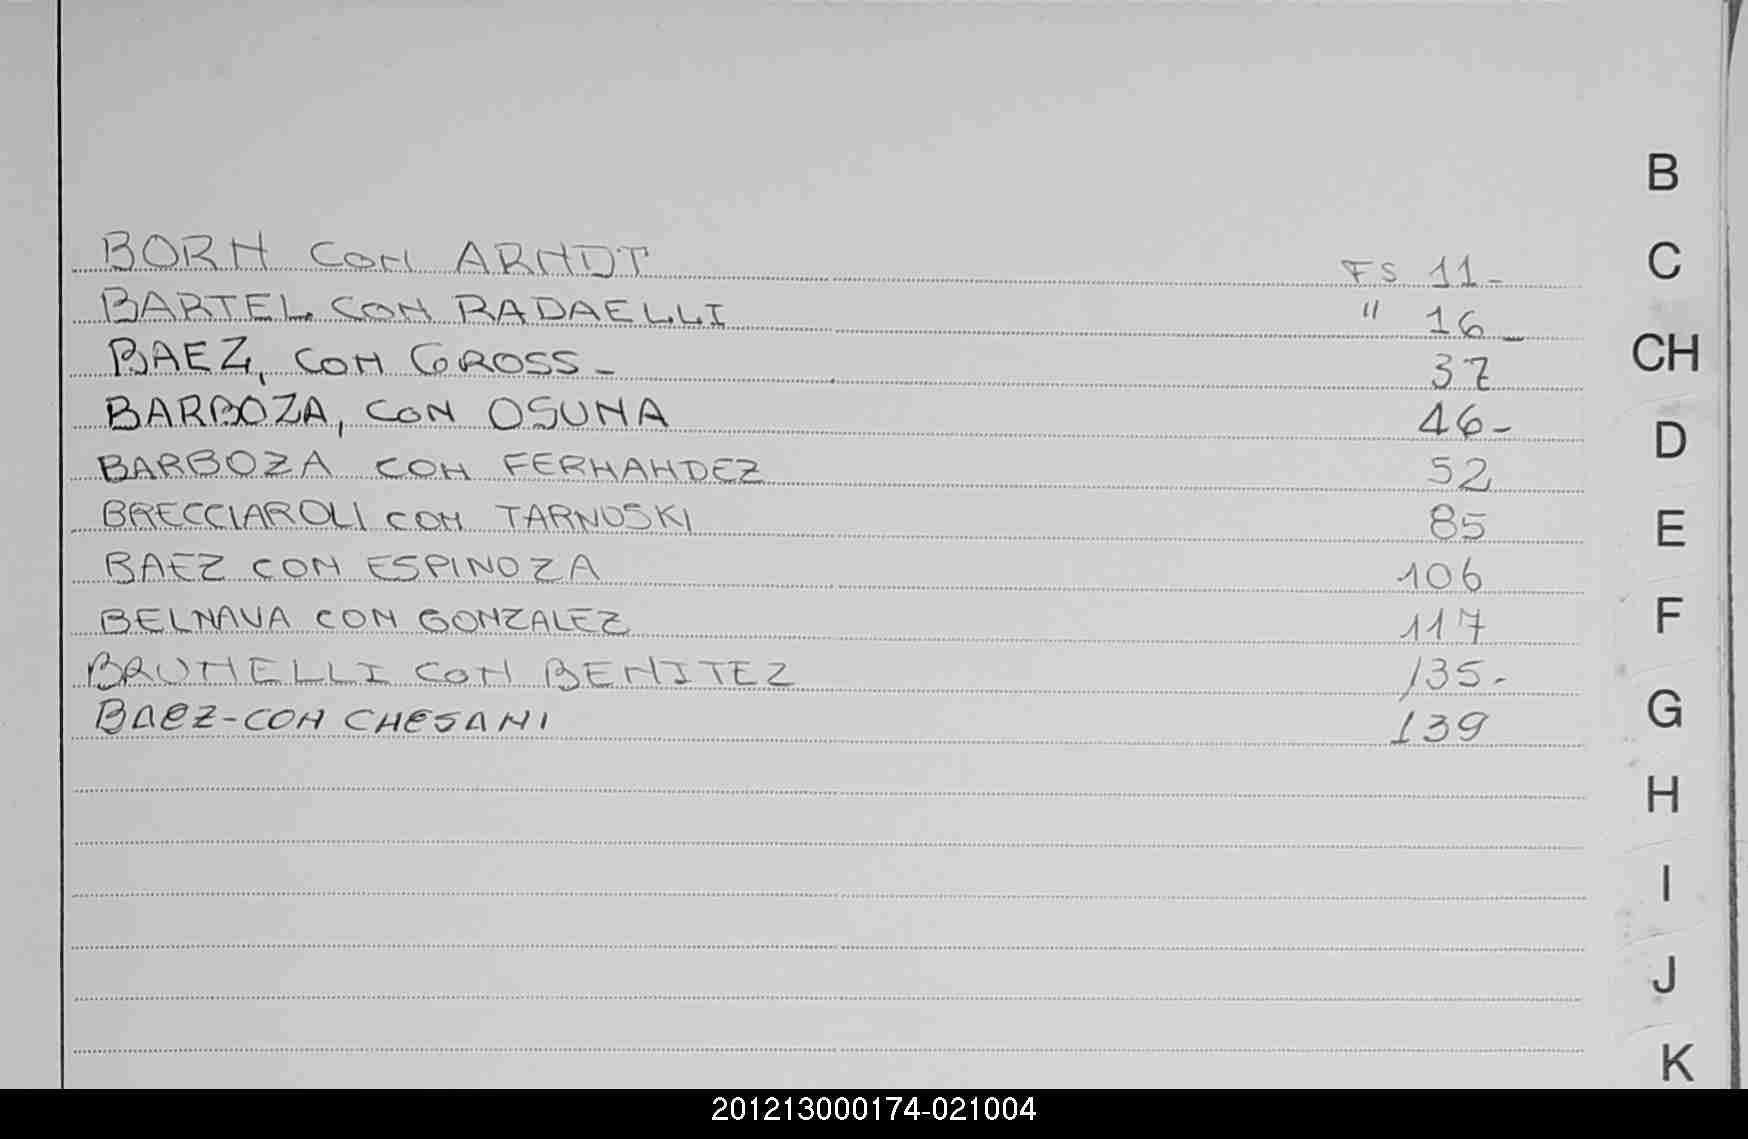 B
BORN CON ARNDT FS 11-
C
BARTEL CON RADAELLI " 16-
BAEZ, CON GROSS- 37
CH
BARBOZA, CON OSUNA 46-
D
BARBOZA CON FERNANDEZ 52
BRECCIAROLI CON TARNUSKI 85
E
BAEZ CON ESPINOZA 106
BELNAVA CON GONZALEZ 117
F
BRUNELLI CON BENITEZ 135.-
BAEZ-CON CHESANI 139
G
H
I
J
K
201213000174-021004